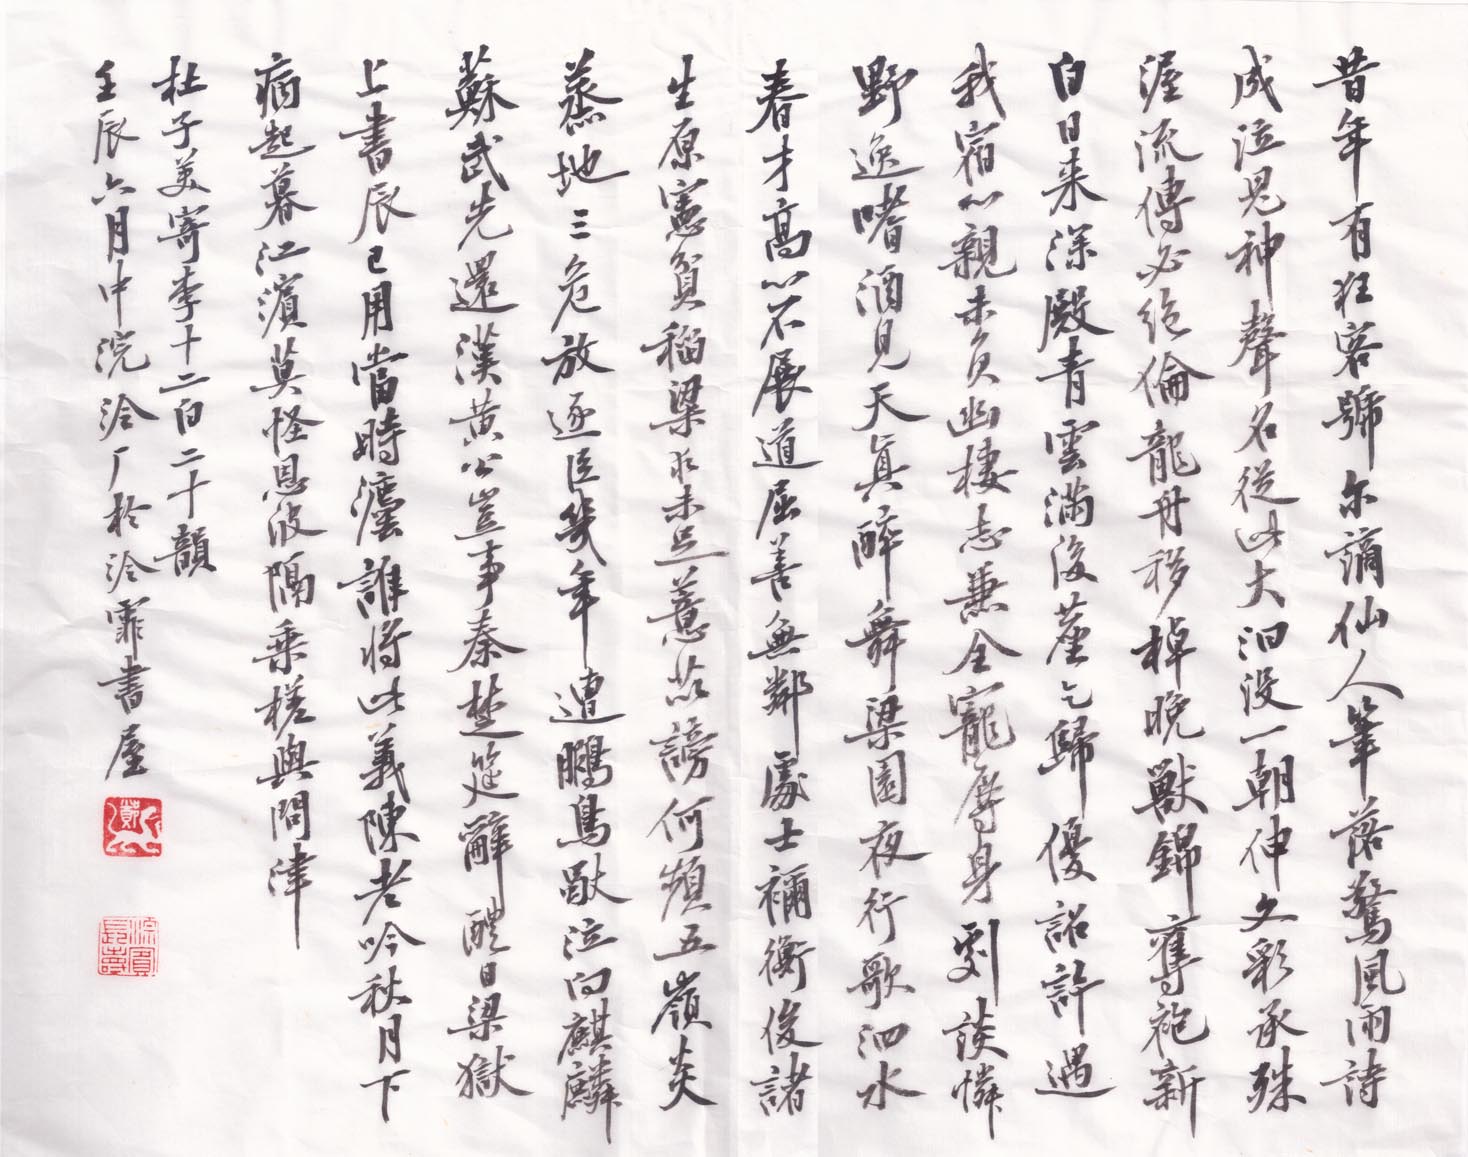 昔年有狂客號尔謫仙人筆落驚風雨詩
成泣鬼神聲名從此大汩没一朝伸文彩承殊
渥流傳必絶倫龍舟移棹晚獸錦奪袍新
白日来深殿青雲滿後塵乞歸優詔許遇
我宿心親未負幽棲志兼全寵辱身劇談憐
野逸嗜酒見天真醉舞梁園夜行歌泗水
春才高心不展道屈善無鄰處士禰衡俊諸
生原憲貧稲粱求未足薏苡謗何頻五嶺炎
蒸地三危放逐臣幾年遭鵩鳥獨泣向麒麟
蘇武先還漢黄公豈事秦楚筵辭醴日梁獄
上書辰已用當時灋誰將此義陳老吟秋月下
病起暮江濱莫怪恩波隔乘槎與問津
杜子美寄李十二白二十韻
壬辰六月中浣泠厂於泠霏書屋